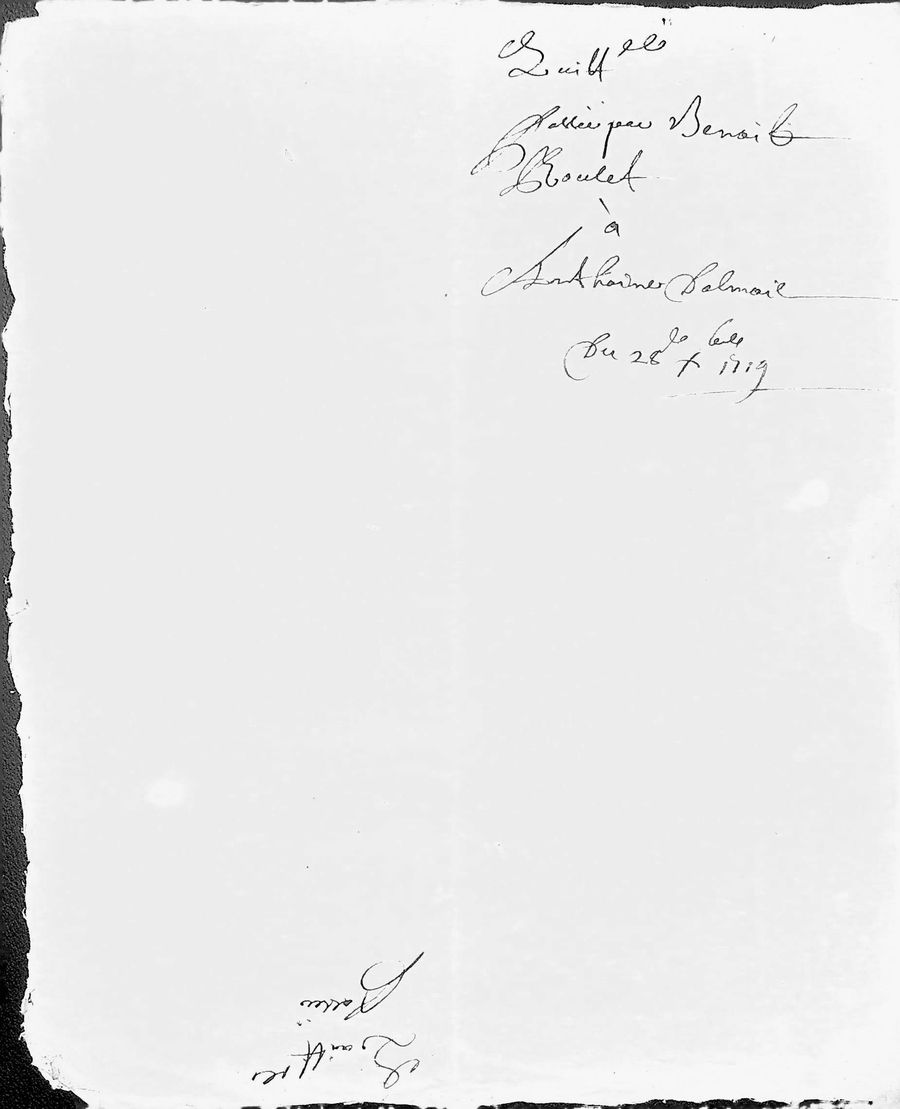 Quitt ce
Passée par Benoit
Roulet
à
Anthoine Dalmait
Du 28 de Xbre 1719
Quittce
Passée